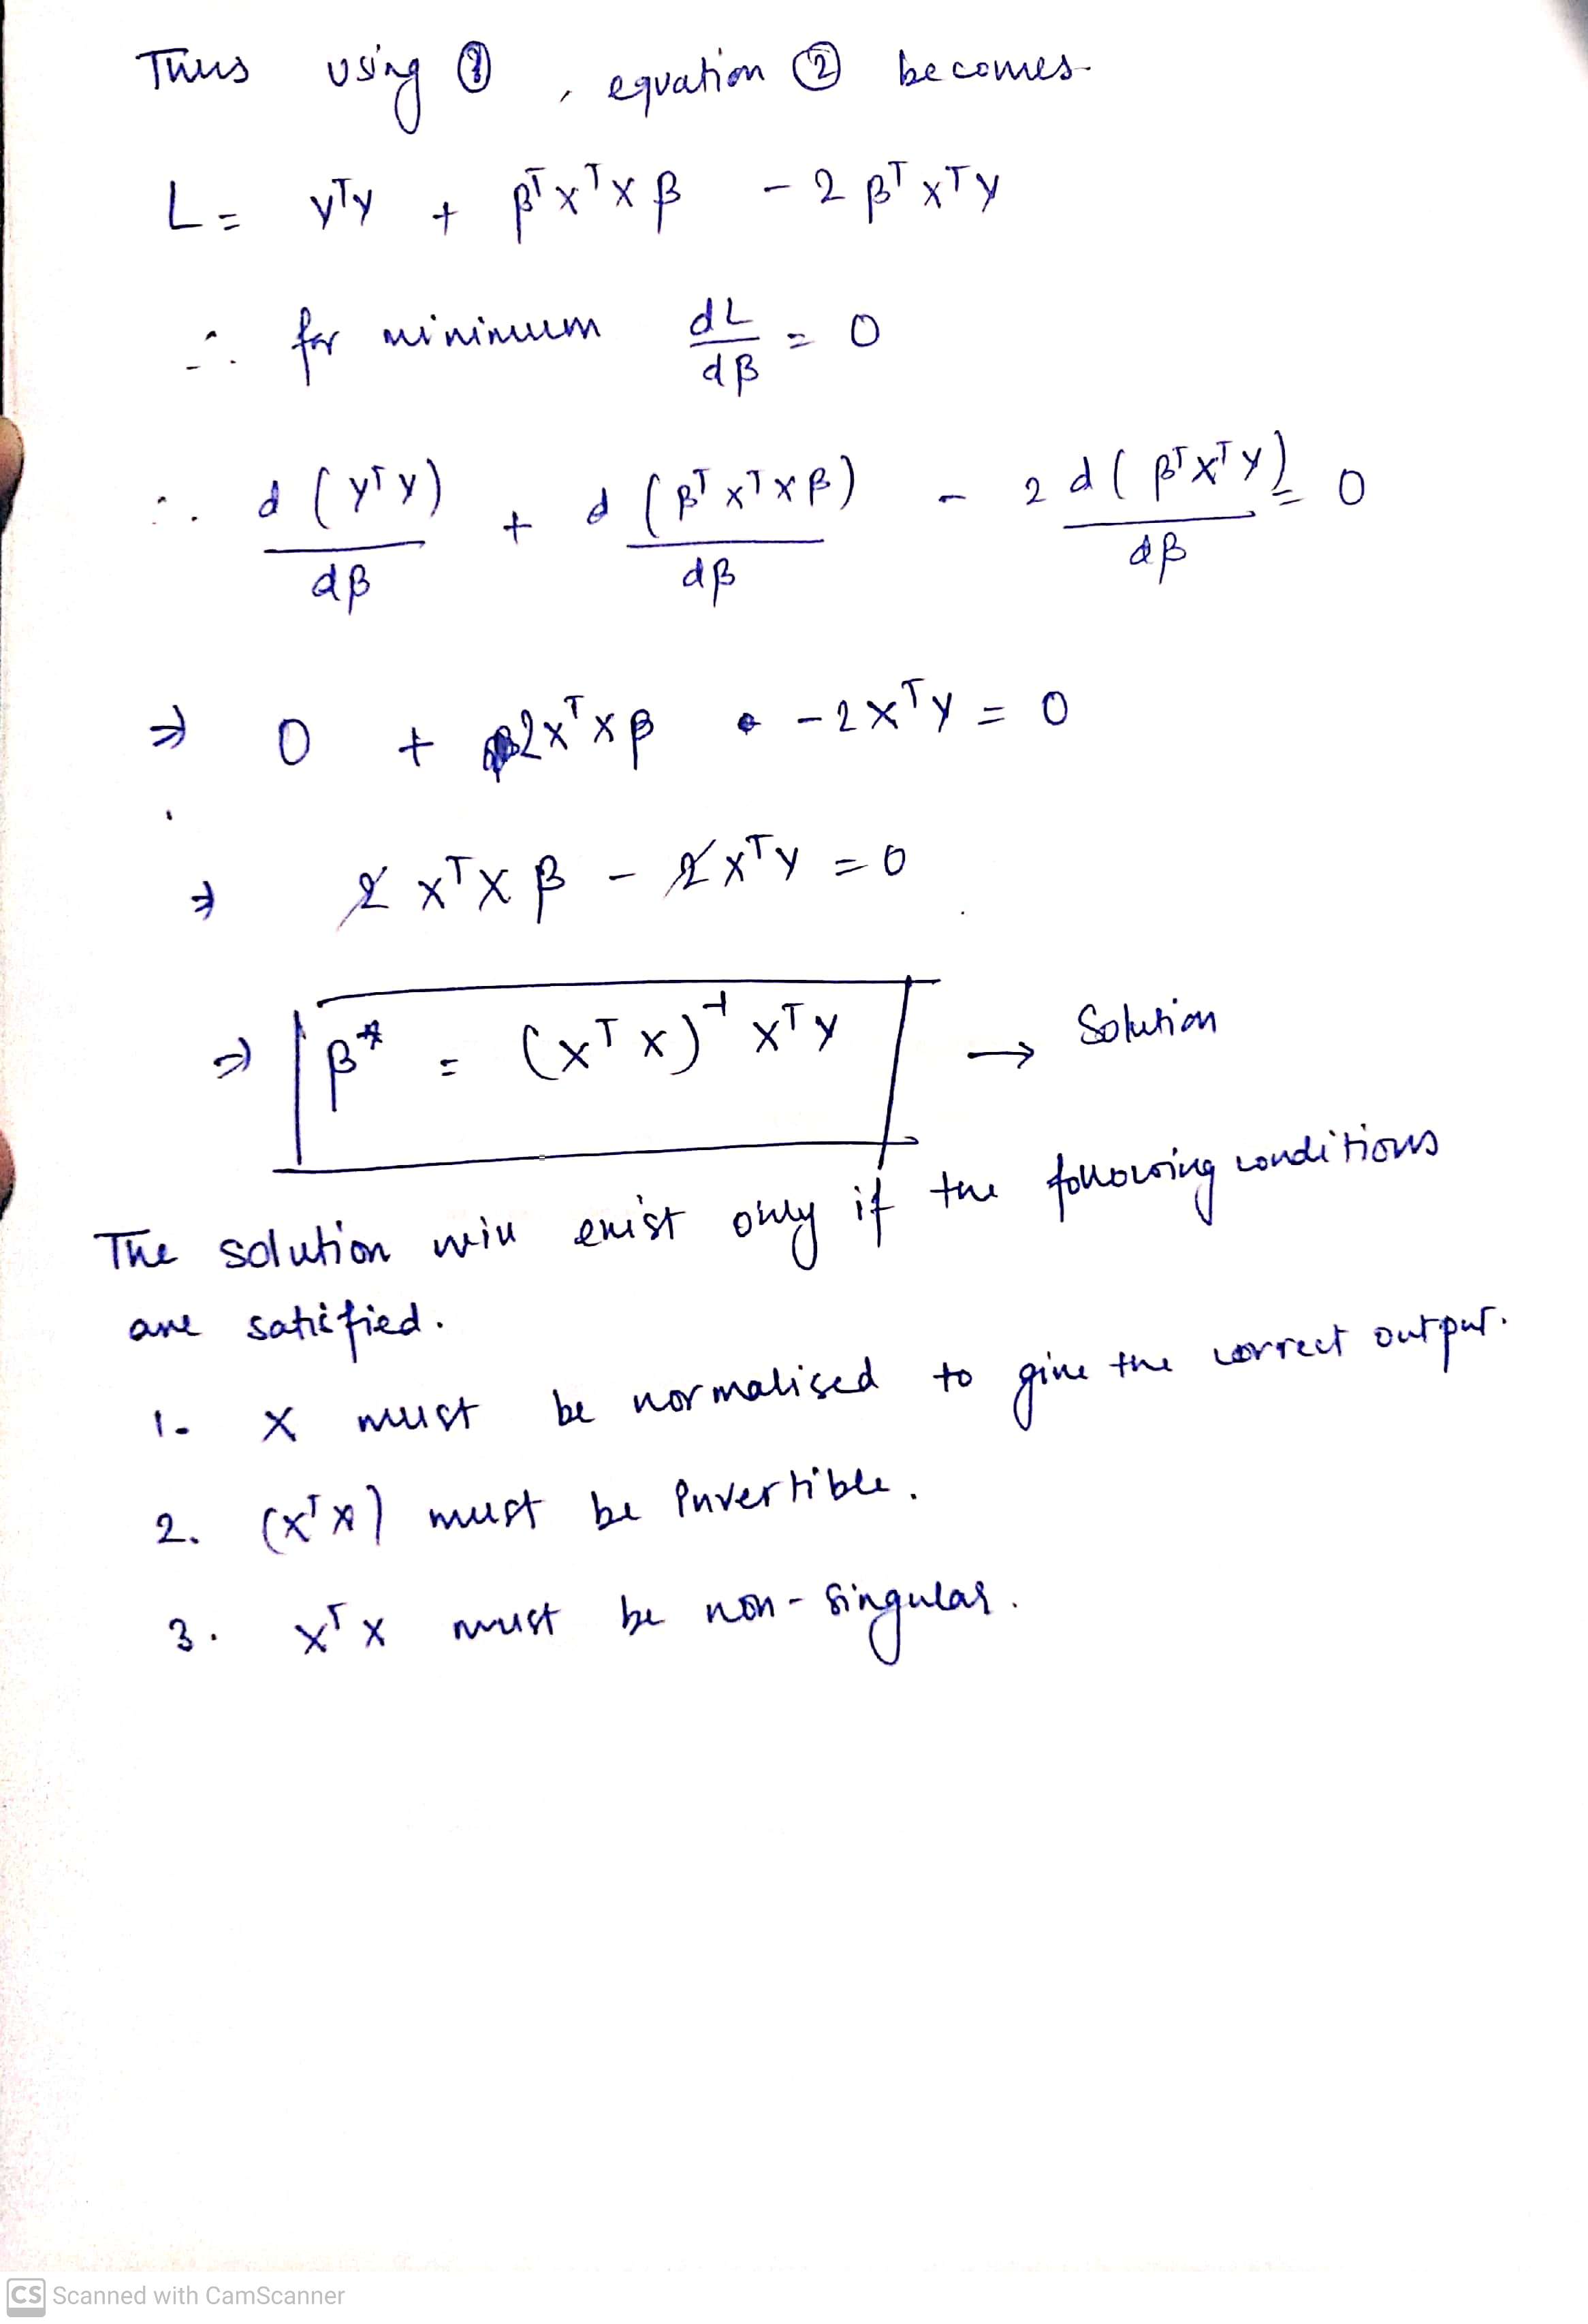 Thus using ① , equation ② becomes
L = yᵀy + βᵀxᵀxβ - 2 βᵀxᵀy
∴ for minimum dL/dβ = 0
∴ d(yᵀy)/dβ + d(βᵀxᵀxβ)/dβ - 2 d(βᵀxᵀy)/dβ = 0
⇒ 0 + 2xᵀxβ - 2xᵀy = 0
⇒ 2 xᵀxβ - 2xᵀy = 0
⇒ β* = (xᵀx)⁻¹ xᵀy → Solution
The solution will exist only if the following conditions
are satisfied.
1. X must be normalised to give the correct output.
2. (xᵀx) must be invertible.
3. xᵀx must be non-singular.
CS Scanned with CamScanner